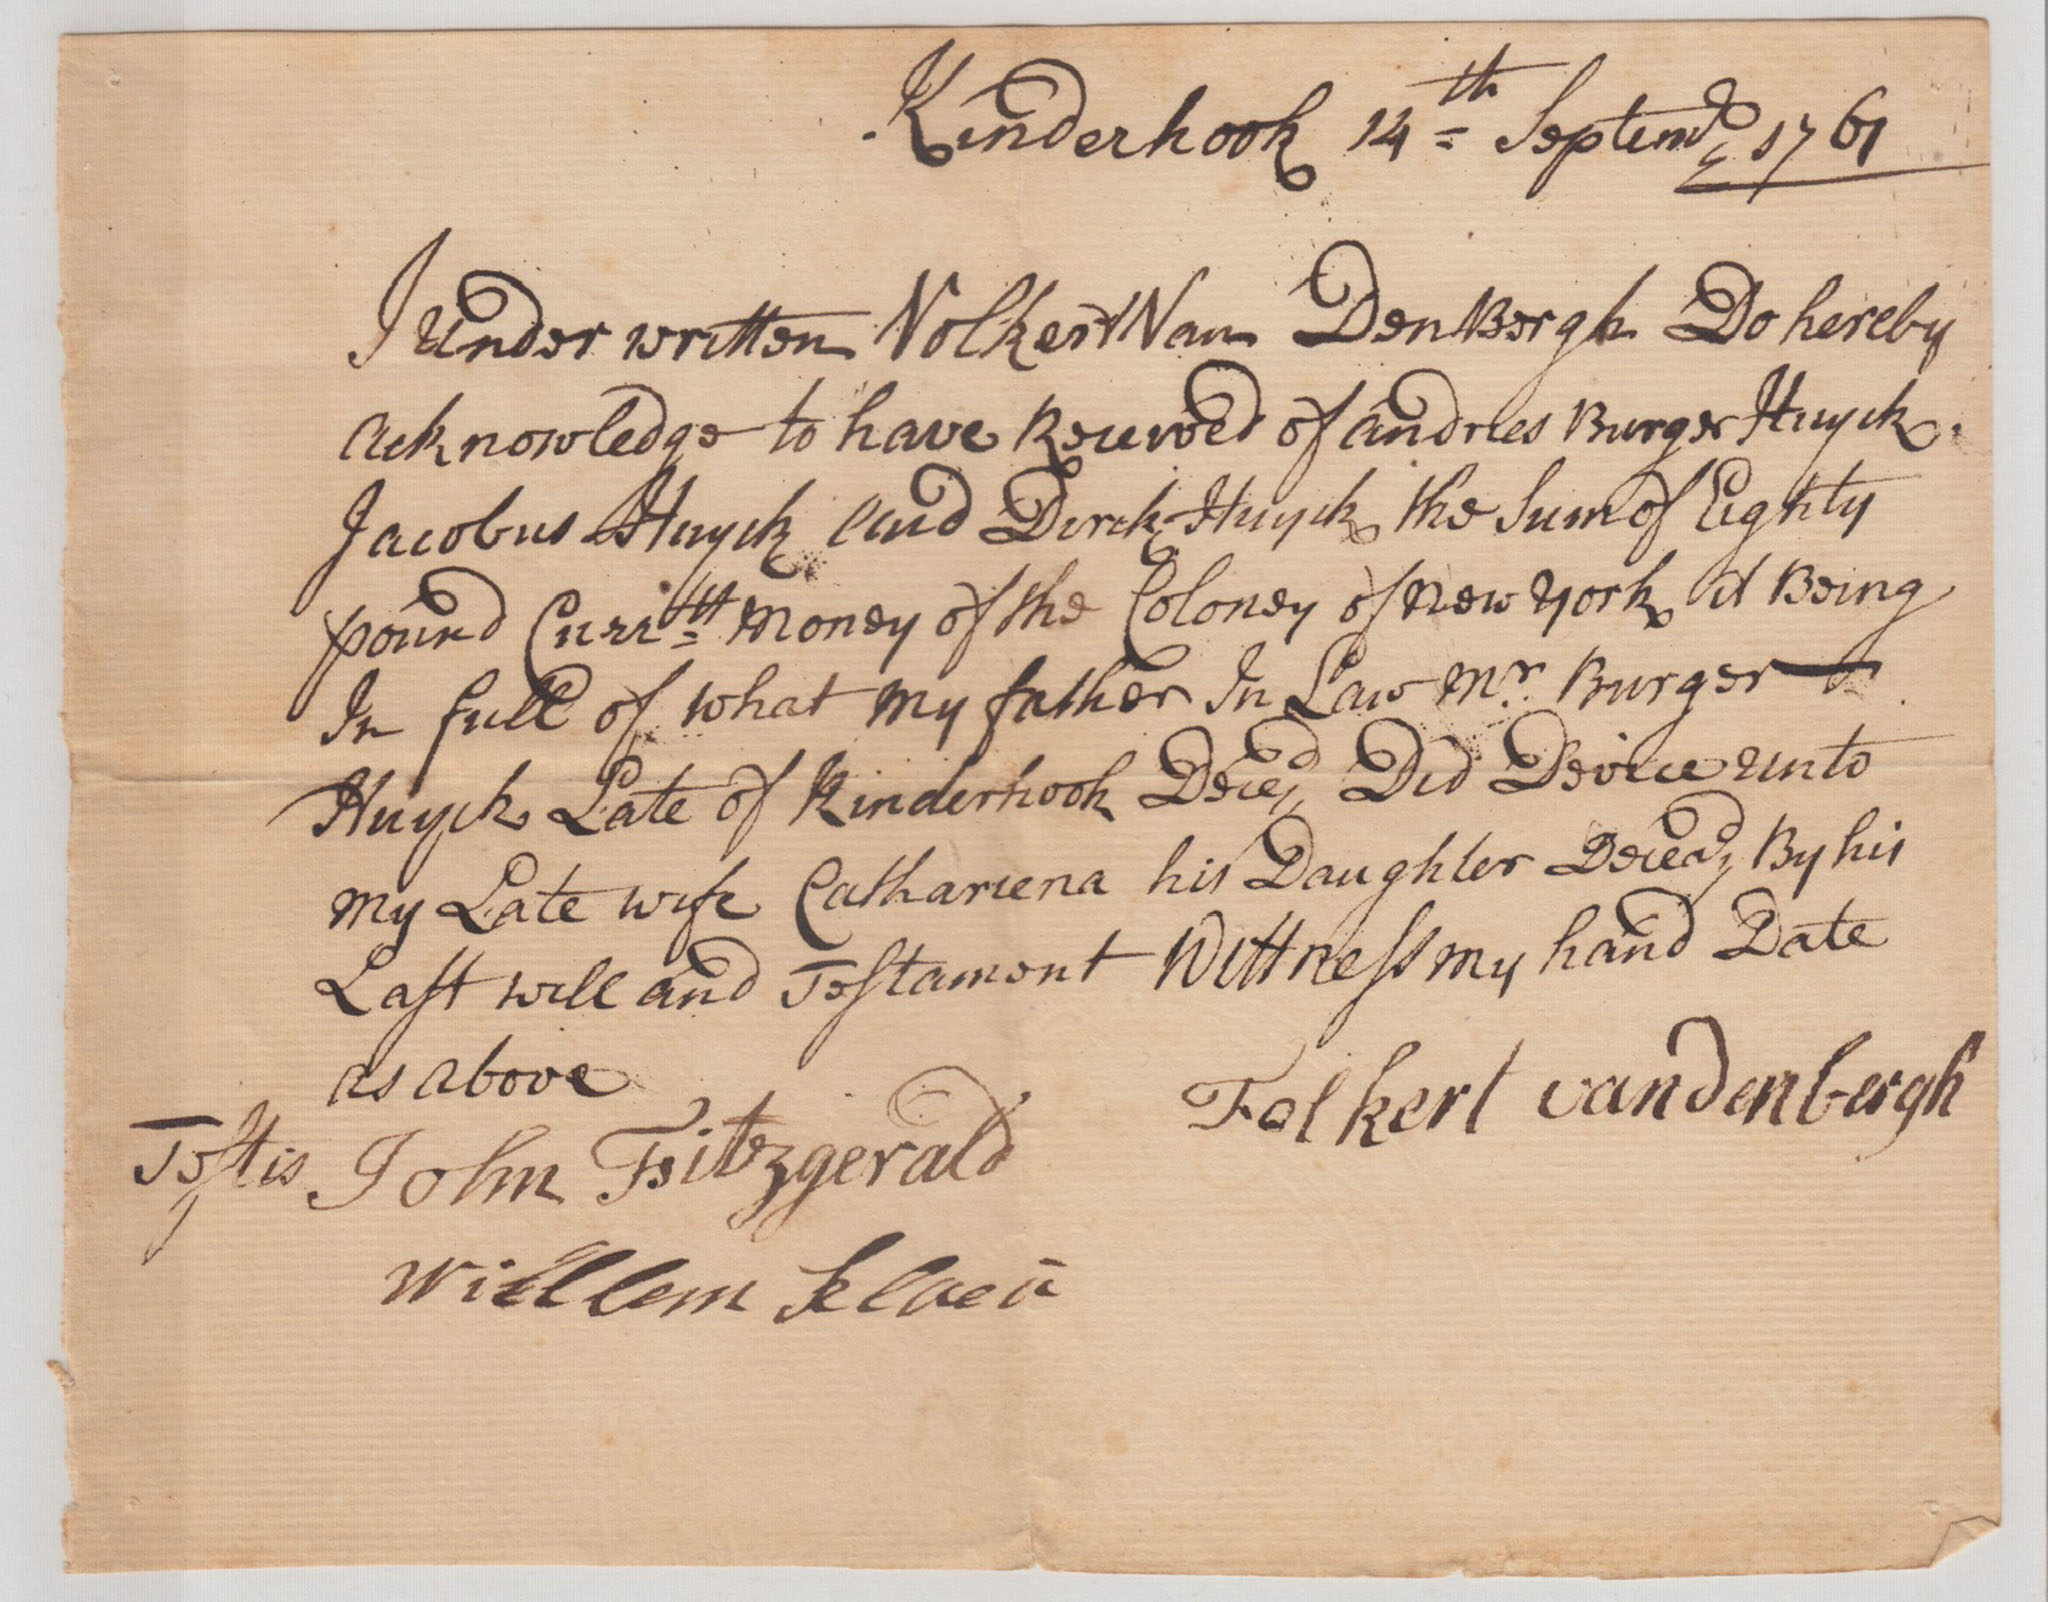 Kinderhook 14th Septemb 1761
I underwritten Volkert Van DenBergh Do hereby
acknowledge to have Received of andries Burger Huyck
Jacobus Huyck and Dirck Huyck the Sum of Eighty
pound Currtt money of the Coloney of New York it Being
In full of what my father In Law Mr. Burger
Huyck Late of Kinderhook Deced Did Device unto
my Late wife Cathariena his Daughter Deced By his
Last will and Testament Wittness my hand Date
as above
Folkert vandenbergh
Testis John Fitzgerald
Willem